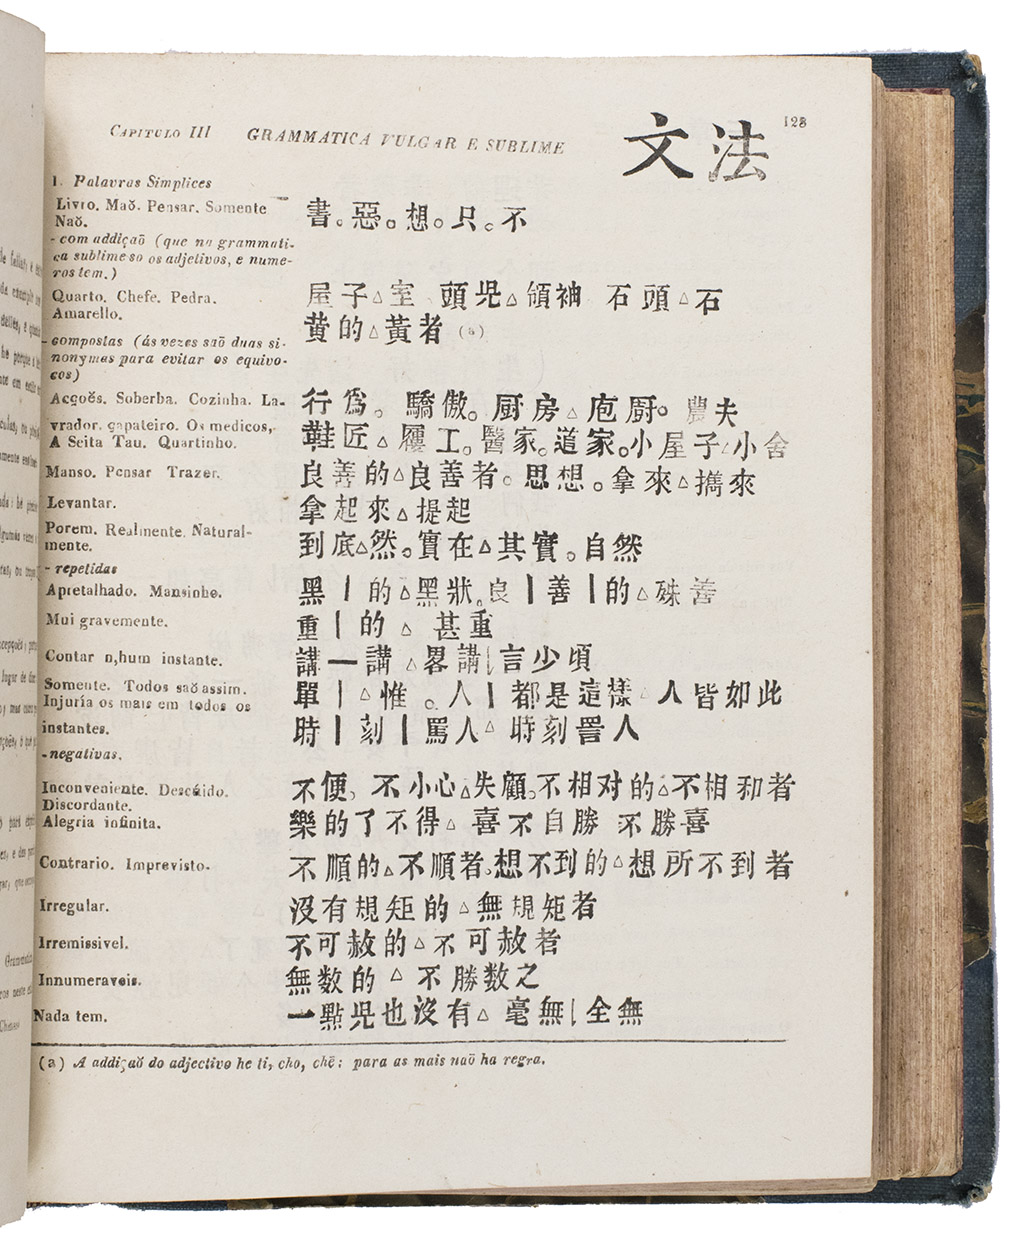 CAPITULO III GRAMMATICA VULGAR E SUBLIME 文法 128
1. Palavras Simplices
Livro. Maõ. Pensar. Somente 書。惡。想。只。不
Naõ.
- com addiçaõ (que na grammati-
ca sublime so os adjetivos, e nume-
ros tem.)
Quarto. Chefe. Pedra. 屋子△室 頭児△領袖 石頭△石
Amarello. 黄的△黃者 (a)
- compostas (ás vezes saõ duas si-
nonymas para evitar os equivo-
cos)
Acçoẽs. Soberba. Cozinha. La- 行爲。驕傲。厨房△庖厨。農夫
vrador. çapateiro. Os medicos, 鞋匠△屨工。醫家。道家。小屋子△小舍
A Seita Tau. Quartinho.
Manso. Pensar Trazer. 良善的△良善者。思想。拿來△擕來
Levantar. 拿起來△提起
Porem. Realmente. Natural- 到底△然。實在△其實。自然
mente.
- repetidas
Apretalhado. Mansinho. 黑丨的△黑狀。良丨善丨的△殊善
Mui gravemente. 重丨的△甚重
Contar n,hum instante. 講一講△畧講丨言少頃
Somente. Todos saõ assim. 單丨△惟。人丨都是這樣△人皆如此
Injuría os mais em todos os
instantes. 時丨刻丨罵人△時刻詈人
- negativas.
Inconveniente. Descuido. 不便, 不小心△失顧。不相对的△不相和者
Discordante.
Alegria infinita. 樂的了不得△喜不自勝 不勝喜
Contrario. Imprevisto. 不順的△不順者。想不到的△想所不到者
Irregular. 沒有規矩的△無規矩者
Irremissivel. 不可赦的△不可赦者
Innumeraveis. 無数的△不勝数之
Nada tem. 一點児也沒有△毫無丨全無
(a) A addiçaõ do adjectivo he ti, cho, chẽ: para as mais naõ ha regra.